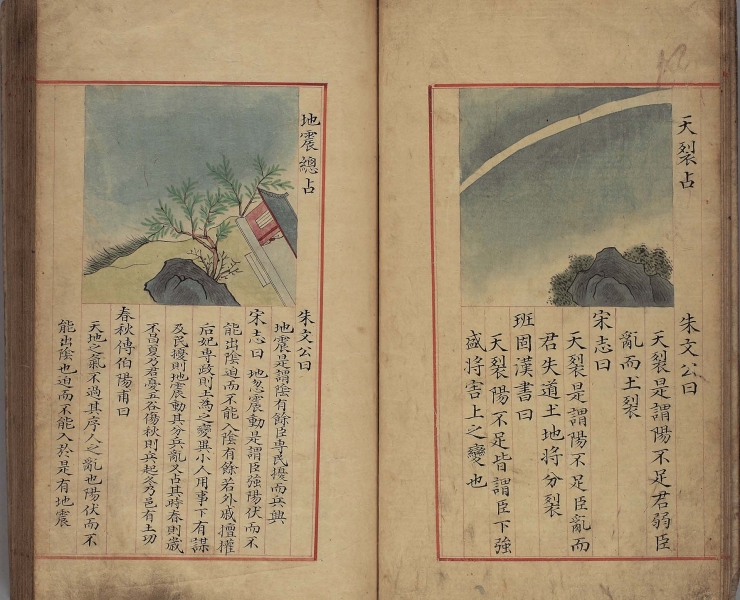 天裂占
朱文公曰
天裂是謂陽不足君弱臣
亂而土裂
宋志曰
天裂是謂陽不足臣亂而
君失道土地將分裂
班固漢書曰
天裂陽不足皆謂臣下強
盛將害上之變也
地震總占
朱文公曰
地震是謂陰有餘臣専民擾而兵興
宋志曰 地忽震動是謂臣強陽伏而不
能出陰迫而不能入陰有餘若外戚擅權
后妃専政則土為之變與小人用事下有謀
及民擾則地震動其分兵亂又占其時春則歲
不昌夏乃君憂五谷傷秋則兵起冬乃邑有土功
春秋傳伯陽甫曰
天地之氣不過其序人之亂也陽伏而不
能出陰也迫而不能入於是有地震